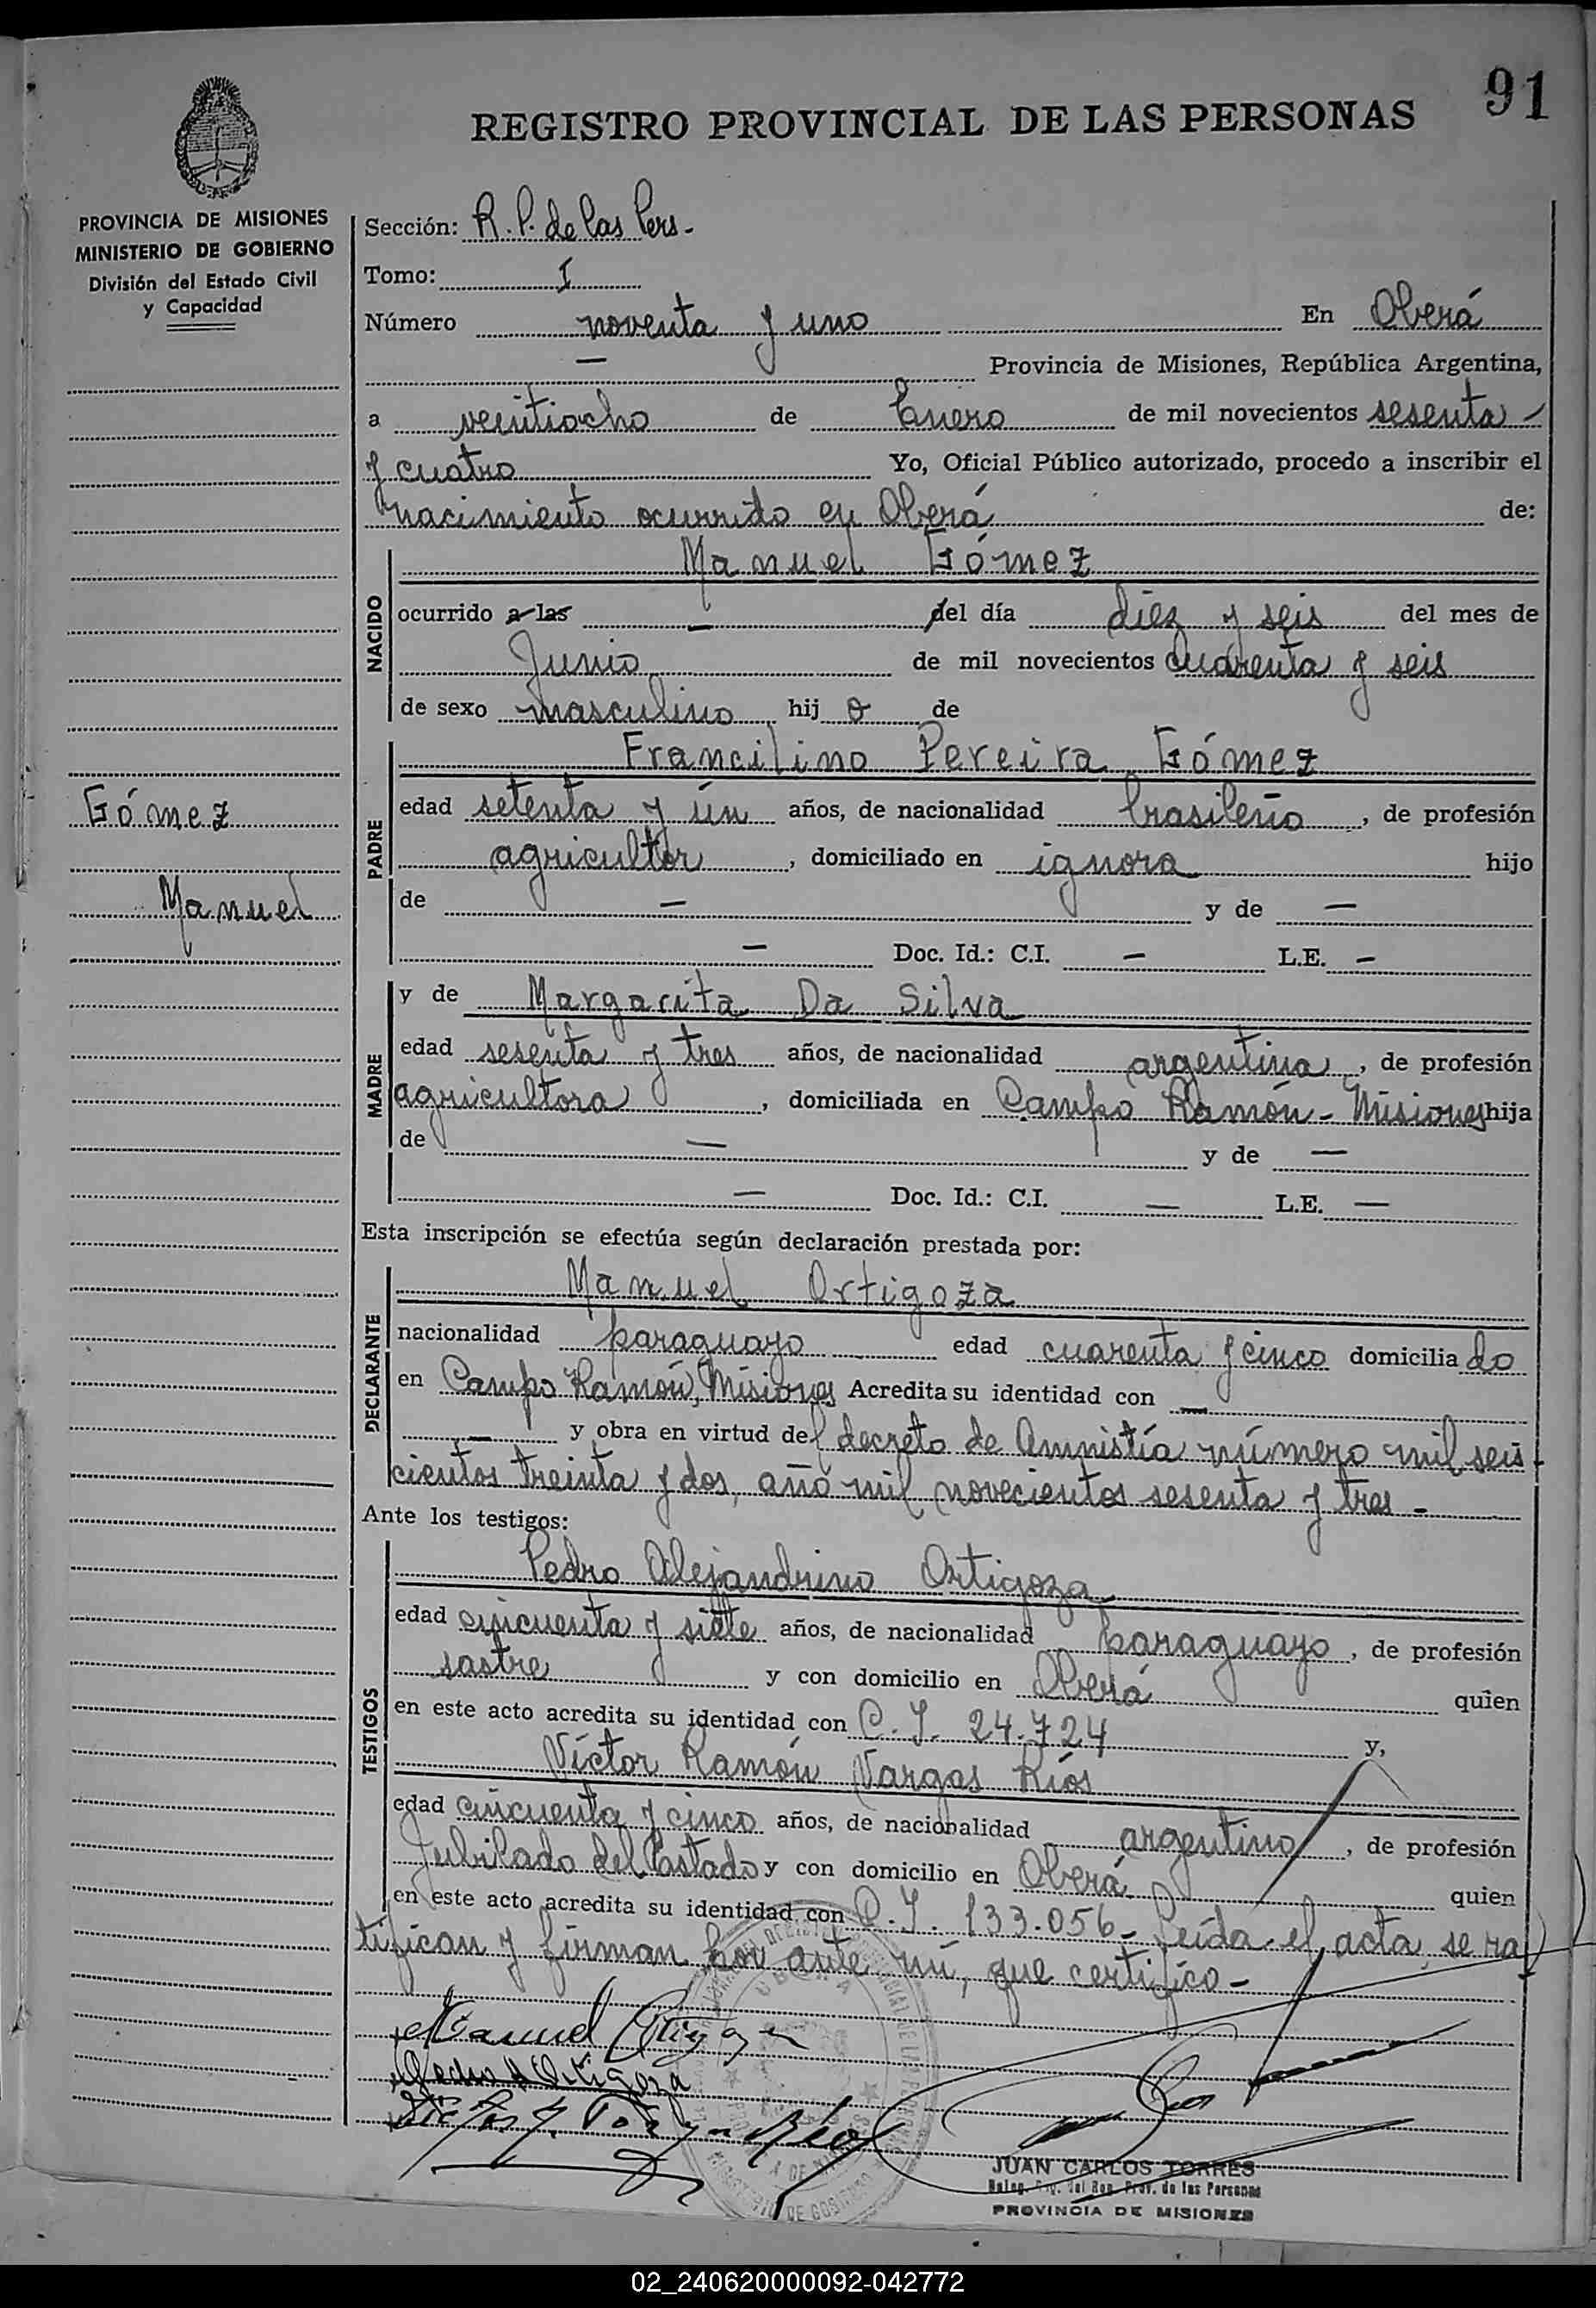 91
REGISTRO PROVINCIAL DE LAS PERSONAS
PROVINCIA DE MISIONES
MINISTERIO DE GOBIERNO
División del Estado Civil
y Capacidad
Sección: R. P. de las Pers.
Tomo: I
Número noventa y uno En Oberá
— Provincia de Misiones, República Argentina,
a veintiocho de Enero de mil novecientos sesenta -
y cuatro Yo, Oficial Público autorizado, procedo a inscribir el
nacimiento ocurrido en Oberá de:
NACIDO
Manuel Gómez
ocurrido a las — del día diez y seis del mes de
Junio de mil novecientos cuarenta y seis
de sexo masculino hijo de
PADRE
Francilino Pereira Gómez
Gómez
Manuel
edad setenta y ún años, de nacionalidad brasileño, de profesión
agricultor, domiciliado en ignora hijo
de — y de —
— Doc. Id.: C.I. — L.E. —
MADRE
y de Margarita Da Silva
edad sesenta y tres años, de nacionalidad argentina, de profesión
agricultora, domiciliada en Campo Ramón - Misiones hija
de — y de —
— Doc. Id.: C.I. — L.E. —
Esta inscripción se efectúa según declaración prestada por:
DECLARANTE
Manuel Ortigoza
nacionalidad paraguayo edad cuarenta y cinco domiciliado
en Campo Ramón, Misiones Acredita su identidad con —
— y obra en virtud del decreto de Amnistía número mil seis
cientos treinta y dos, año mil novecientos sesenta y tres -
Ante los testigos:
TESTIGOS
Pedro Alejandrino Ortigoza
edad cincuenta y siete años, de nacionalidad paraguayo, de profesión
sastre y con domicilio en Oberá quien
en este acto acredita su identidad con C. I. 24.724 y,
Víctor Ramón Vargas Ríos
edad cincuenta y cinco años, de nacionalidad argentino, de profesión
Jubilado del Estado y con domicilio en Oberá quien
en este acto acredita su identidad con C. I. 133.056 - Leída el acta, se ra
tifican y firman por ante mí, que certifico -
Manuel Ortigoza
Pedro A Ortigoza
JUAN CARLOS TORRES
Prov. de las Personas
PROVINCIA DE MISIONES
02_240620000092-042772